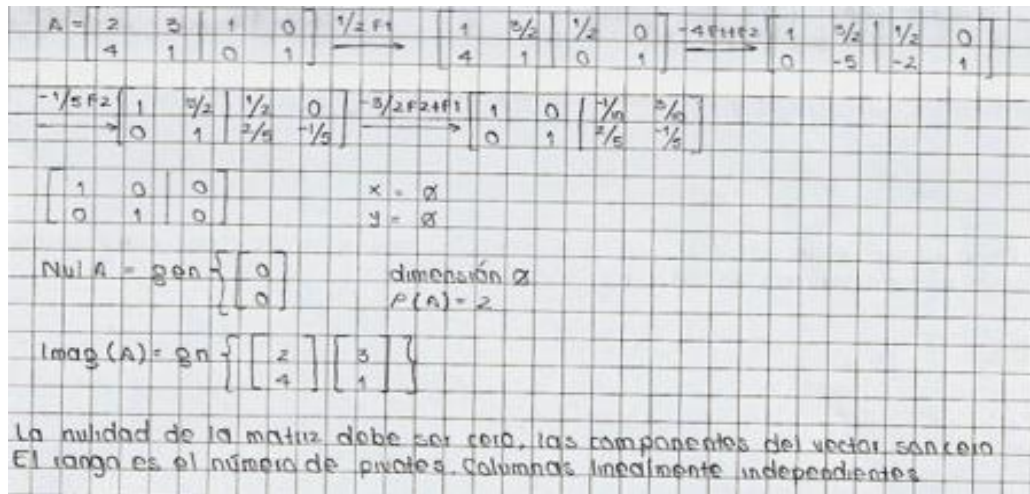 A = [ 2 3 | 1 0 ] 1/2 F1 [ 1 3/2 | 1/2 0 ] -4F1+F2 [ 1 3/2 | 1/2 0 ]
[ 4 1 | 0 1 ] → [ 4 1 | 0 1 ] → [ 0 -5 | -2 1 ]
-1/5 F2 [ 1 3/2 | 1/2 0 ] -3/2F2+F1 [ 1 0 | -1/10 3/10 ]
→ [ 0 1 | 2/5 -1/5 ] → [ 0 1 | 2/5 -1/5 ]
[ 1 0 | 0 ] x = 0
[ 0 1 | 0 ] y = 0
Nul A = gen { [ 0 ] dimensión 0
[ 0 ] ρ(A) = 2
Imag (A) = gn { [ 2 ] [ 3 ] }
[ 4 ] [ 1 ]
La nulidad de la matriz debe ser cero, las componentes del vector son cero
El rango es el número de pivotes. Columnas linealmente independientes